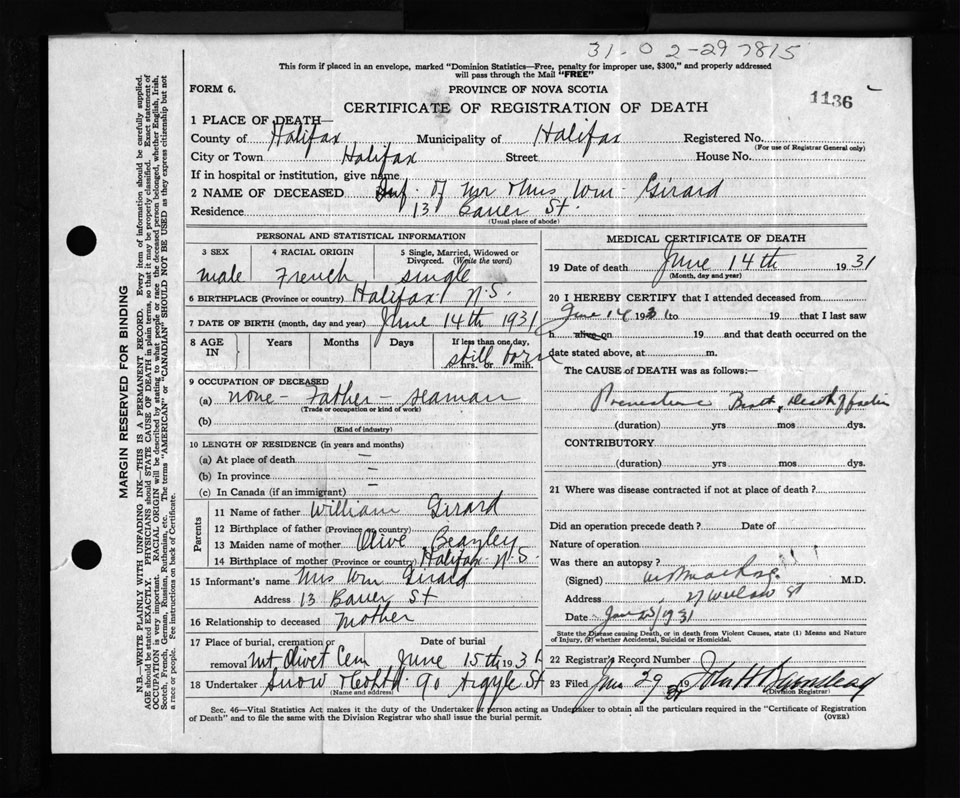 31-02-297815
This form if placed in an envelope, marked "Dominion Statistics—Free, penalty for improper use, $300," and properly addressed
will pass through the Mail "FREE"
FORM 6. PROVINCE OF NOVA SCOTIA
1136
CERTIFICATE OF REGISTRATION OF DEATH
1 PLACE OF DEATH—
County of Halifax Municipality of Halifax Registered No.
(For use of Registrar General only)
City or Town Halifax Street House No.
If in hospital or institution, give name
2 NAME OF DECEASED Inf. of Mr & Mrs Wm Girard
Residence 13 Bauer St.
(Usual place of abode)
PERSONAL AND STATISTICAL INFORMATION
3 SEX 4 RACIAL ORIGIN 5 Single, Married, Widowed or Divorced. (Write the word)
male French single
6 BIRTHPLACE (Province or country) Halifax N.S.
7 DATE OF BIRTH (month, day and year) June 14th 1931
8 AGE IN Years Months Days If less than one day, hrs. or min.
still born
9 OCCUPATION OF DECEASED
(a) none - Father - seaman
(Trade or occupation or kind of work)
(b)
(Kind of industry)
10 LENGTH OF RESIDENCE (in years and months)
(a) At place of death —
(b) In province —
(c) In Canada (if an immigrant) —
Parents
11 Name of father William Girard
12 Birthplace of father (Province or country)
13 Maiden name of mother Olive Beazley
14 Birthplace of mother (Province or country) Halifax N.S.
15 Informant's name Mrs Wm Girard
Address 13 Bauer St
16 Relationship to deceased Mother
17 Place of burial, cremation or removal Mt Olivet Cem Date of burial June 15th 1931
18 Undertaker Snow 90 Argyle St
(Name and address)
MEDICAL CERTIFICATE OF DEATH
19 Date of death June 14th 1931
(Month, day and year)
20 I HEREBY CERTIFY that I attended deceased from
June 14 1931 to 19 that I last saw
h alive on 19 and that death occurred on the
date stated above, at m.
The CAUSE of DEATH was as follows:—
Premature Birth, Death of
(duration) yrs mos dys.
CONTRIBUTORY
(duration) yrs mos dys.
21 Where was disease contracted if not at place of death?
Did an operation precede death? Date of
Nature of operation
Was there an autopsy?
(Signed) M.D.
Address 27 St
Date 1931
State the Disease causing Death, or in death from Violent Causes, state (1) Means and Nature
of Injury, (2) whether Accidental, Suicidal or Homicidal.
22 Registrar's Record Number
23 Filed 29 31 John H
(Division Registrar)
Sec. 46—Vital Statistics Act makes it the duty of the Undertaker or person acting as Undertaker to obtain all the particulars required in the "Certificate of Registration
of Death" and to file the same with the Division Registrar who shall issue the burial permit. (OVER)
MARGIN RESERVED FOR BINDING
N.B.—WRITE PLAINLY WITH UNFADING INK—THIS IS A PERMANENT RECORD. Every item of information should be carefully supplied.
AGE should be stated EXACTLY. PHYSICIANS should STATE CAUSE OF DEATH in plain terms, so that it may be properly classified. Exact statement of
OCCUPATION is very important. RACIAL ORIGIN will be described by stating to what people or race the deceased person belonged, whether English, Irish,
Scotch, French, German, Russian, Ruthenian, etc. The terms "AMERICAN" or "CANADIAN" SHOULD NOT BE USED as they express citizenship but not
a race or people. See instructions on back of Certificate.